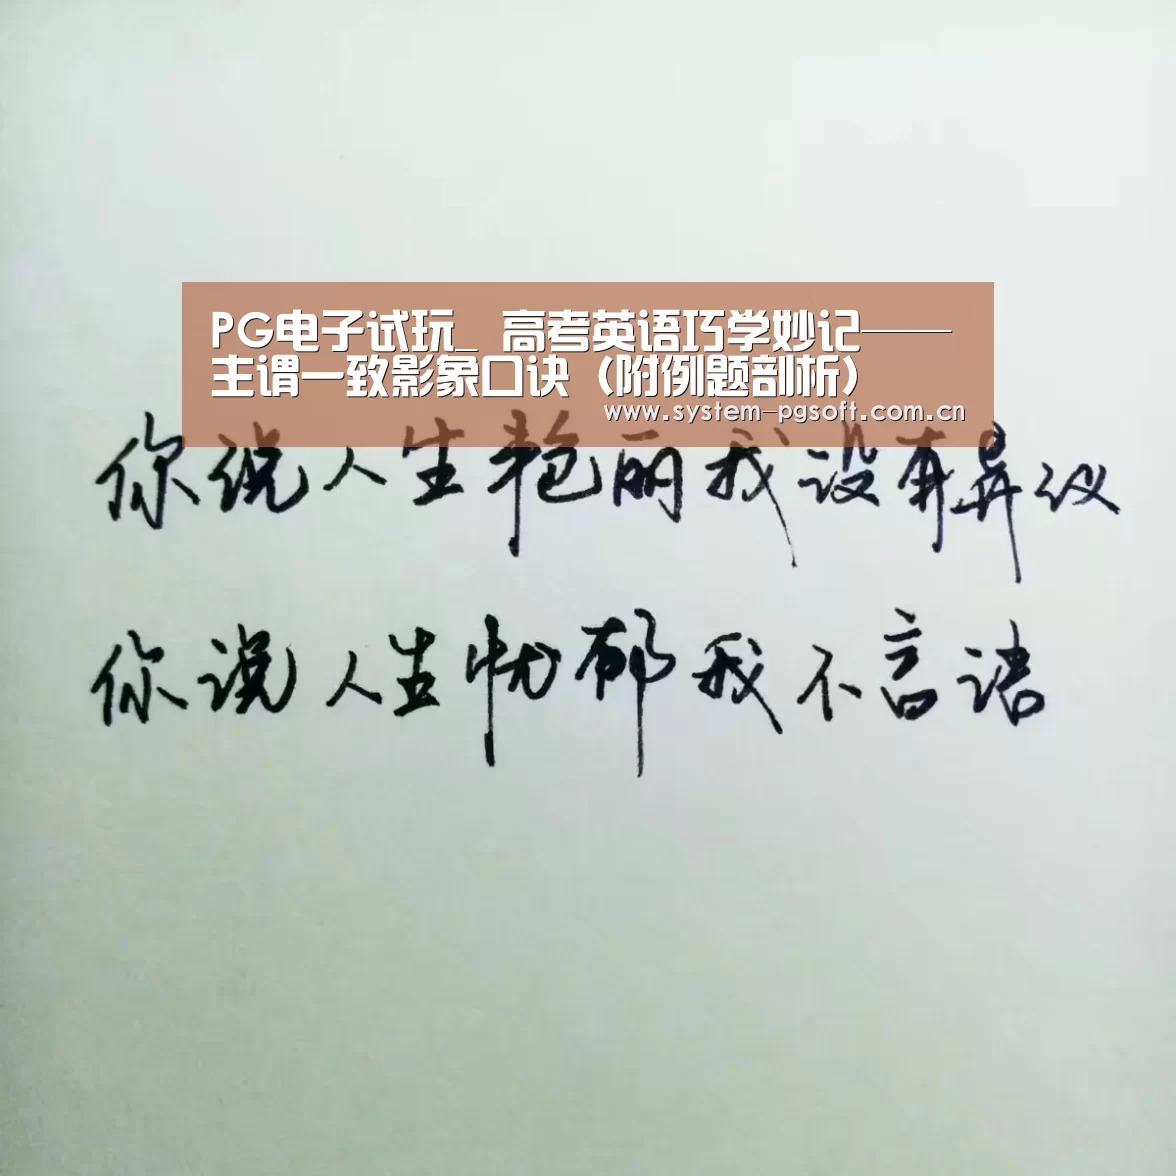 PG电子试玩_ 高考英语巧学妙记——
主谓一致影象口诀（附例题剖析）
www.system-pgsoft.com.cn
你说人生艳丽我没有异议
你说人生忧郁我不言语